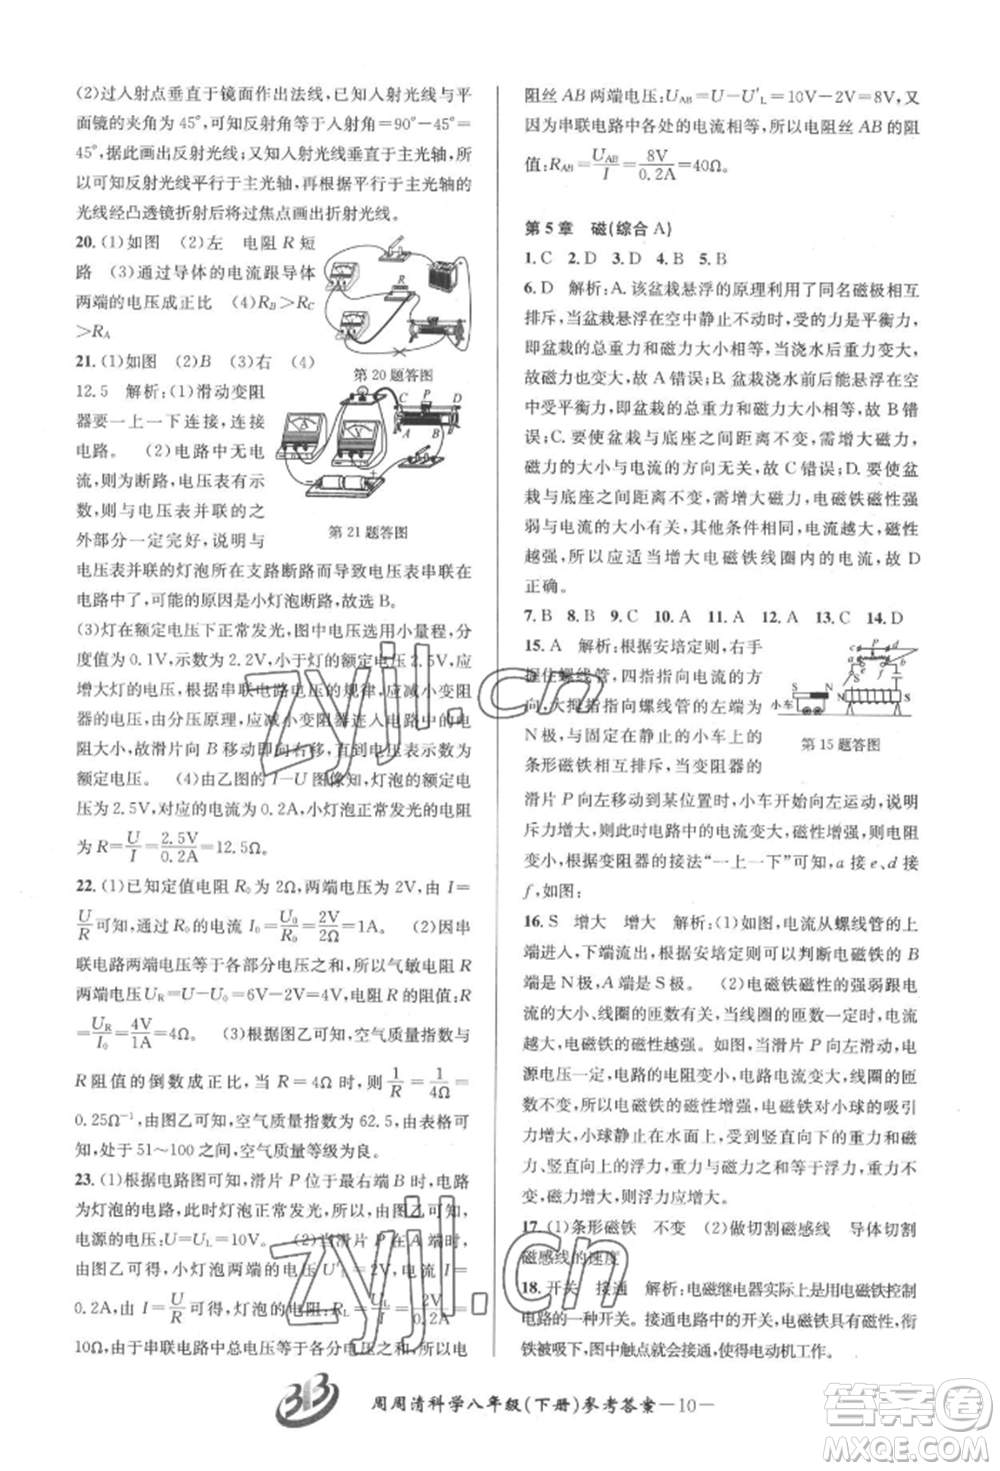 (2)过入射点垂直于镜面作出法线,已知入射光线与平
面镜的夹角为45°,可知反射角等于入射角=90°-45°=
45°,据此画出反射光线;又知入射光线垂直于主光轴,
可知反射光线平行于主光轴,再根据平行于主光轴的
光线经凸透镜折射后将过焦点画出折射光线。
20.(1)如图 (2)左 电阻R短
路 (3)通过导体的电流跟导体
两端的电压成正比 (4)RB>RC
>RA
第20题答图
21.(1)如图 (2)B (3)右 (4)
12.5 解析:(1)滑动变阻
器要一上一下连接,连接
电路。 (2)电路中无电
流,则为断路,电压表有示
数,则与电压表并联的
外部分一定完好,说明与
第21题答图
电压表并联的灯泡所在支路断路而导致电压表串联在
电路中了,可能的原因是小灯泡断路,故选B。
(3)灯在额定电压下正常发光,图中电压选用小量程,分
度值为0.1V,示数为2.2V,小于灯的额定电压2.5V,应
增大灯的电压,根据串联电路电压的规律,应减小变阻器
的电压,由分压原理,应减小变阻器连入电路中的电
阻大小,故滑片向B移动即向右移,直到电压表示数为
额定电压。 (4)由乙图的I-U图像知,灯泡的额定电
压为2.5V,对应的电流为0.2A,小灯泡正常发光的电阻
为R=U/I=2.5V/0.2A=12.5Ω。
22.(1)已知定值电阻R0为2Ω,两端电压为2V,由I=
U/R可知,通过R0的电流I0=U0/R0=2V/2Ω=1A。 (2)因串
联电路两端电压等于各部分电压之和,所以气敏电阻R
两端电压UR=U-U0=6V-2V=4V,电阻R的阻值:R
=UR/I0=4V/1A=4Ω。 (3)根据图乙可知,空气质量指数与
R阻值的倒数成正比,当R=4Ω时,则1/R=1/4Ω=
0.25Ω⁻¹,由图乙可知,空气质量指数为62.5,由表格可
知,处于51~100之间,空气质量等级为良。
23.(1)根据电路图可知,滑片P位于最右端B时,电路
为灯泡的电路,灯泡的电压等于电源电压,由图乙可知,
电源的电压:U=UL=10V。 (2)当滑片P在A端时,由
图乙可得,小灯泡两端的电压U'L=2V,电路中的电流I=
0.2A,由I=U/R可得,灯泡的电阻:RL=U'L/I=2V/0.2A=
10Ω,由于串联电路中总电压等于各分电压之和,所以电
阻丝AB两端电压:UAB=U-U'L=10V-2V=8V,又
因为串联电路中各处的电流相等,所以电阻丝AB的阻
值:RAB=UAB/I=8V/0.2A=40Ω。
第5章 磁(综合A)
1.C 2.D 3.D 4.B 5.B
6.D 解析:A.该盆栽悬浮的原理利用了同名磁极相互
排斥,当盆栽悬浮在空中静止不动时,受的力是平衡力,
即盆栽的总重力和磁力大小相等,由于浇水后,盆栽的总
重力变大,所以磁力变大,故A错误;B.盆栽浇水前后都
在空中静止不动时,受的力都是平衡力,大小相等,方向相
反,即盆栽的总重力和磁力大小始终相等,所以B错
误;C.要使盆栽与底座之间的距离不变,需增大磁力,
磁力的大小与电流的方向无关,故C错误;D.要使盆
栽与底座之间的距离不变,需增大磁力,电磁铁磁性强
弱与电流的大小有关,其他条件相同时,电流越大,磁性
越强,所以可适当增大电磁铁线圈内的电流,故D
正确。
7.B 8.B 9.C 10.A 11.A 12.A 13.C 14.D
15.A 解析:根据安培定则,右手
握住螺线管,四指指向电流的方
向,大拇指指向螺线管的左端为
N极,与固定在静止的小车上的
条形磁铁相互排斥,当变阻器的
小车
第15题答图
滑片P向左移动到某位置时,小车向左运动,说明
斥力增大,则此时电路中的电流变大,磁性增强,电阻
变小,根据变阻器的接法“一上一下”可知,a接e、d接
f,如图:
16.S 增大 增大 解析:(1)如图,电流从螺线管的上
端进入,下端流出,根据安培定则可以判断电磁铁的B
端是N极,A端是S极。 (2)电磁铁磁性的强弱跟电流
的大小、线圈的匝数有关,当线圈的匝数一定时,电流
越大,电磁铁的磁性越强。如图,当滑片P向左滑动,
电源电压一定,电路的电阻变小,电路电流变大,线圈的匝
数不变,所以电磁铁的磁性增强,电磁铁对小球的吸引
力变大。当小球静止在水面上,受到竖直向下的重力和磁
力、竖直向上的浮力,重力与磁力之和等于浮力,重力不
变,磁力增大,则浮力应增大。
17.(1)条形磁铁 不变 (2)做切割磁感线 导体切割
磁感线的速度
18.开关 接通 解析:电磁继电器实际上是用电磁铁控制
电路的一种开关。当控制电路接通时,电磁铁有电流,衔
铁被吸下,图中触点就会接通,使得电动机工作。
周周清科学八年级(下册)参考答案—10—
zyjl.cn
zyjl.cn
作业精灵
MXQE.COM